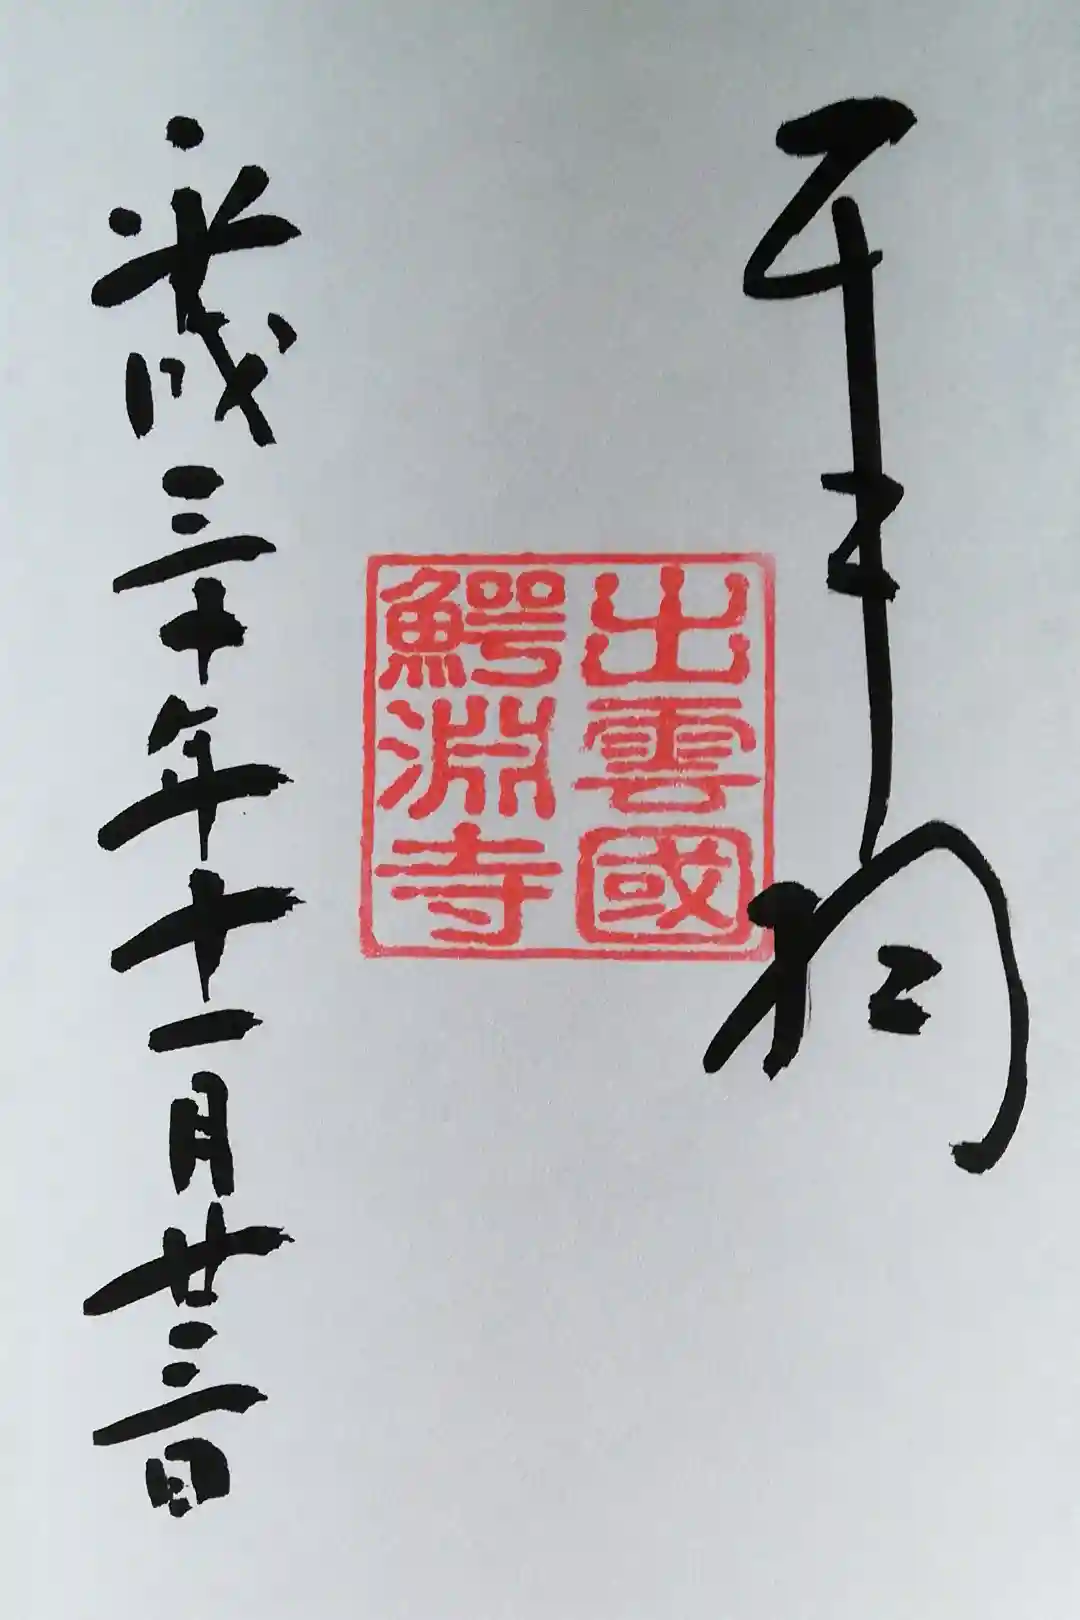 奉拝
出雲國
鰐淵寺
平成三十年十一月廿三日